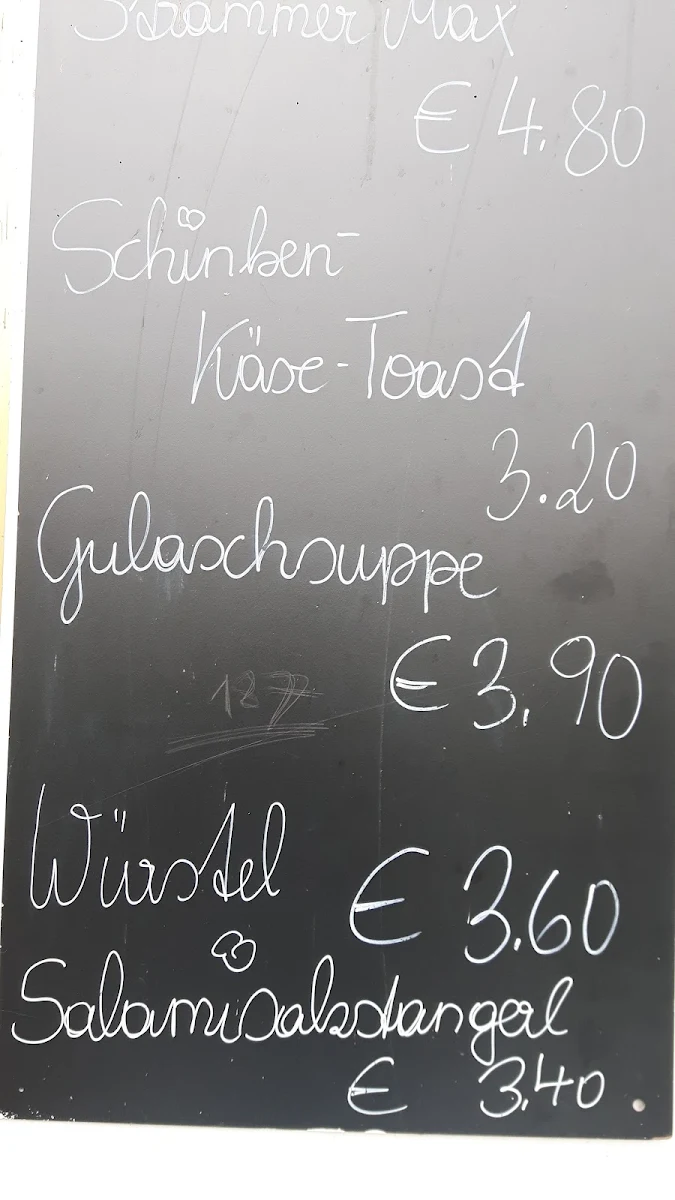 Strammer Max
€ 4.80
Schinken-
Käse-Toast
3.20
Gulaschsuppe
€ 3.90
Würstel
€ 3.60
Salamisalzstangerl
€ 3.40